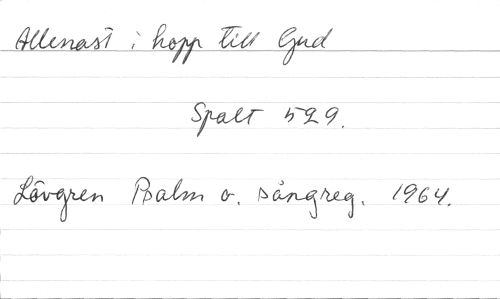 Allenast i hopp till Gud
Spalt 529.
Lövgren Psalm o. sångreg. 1964.